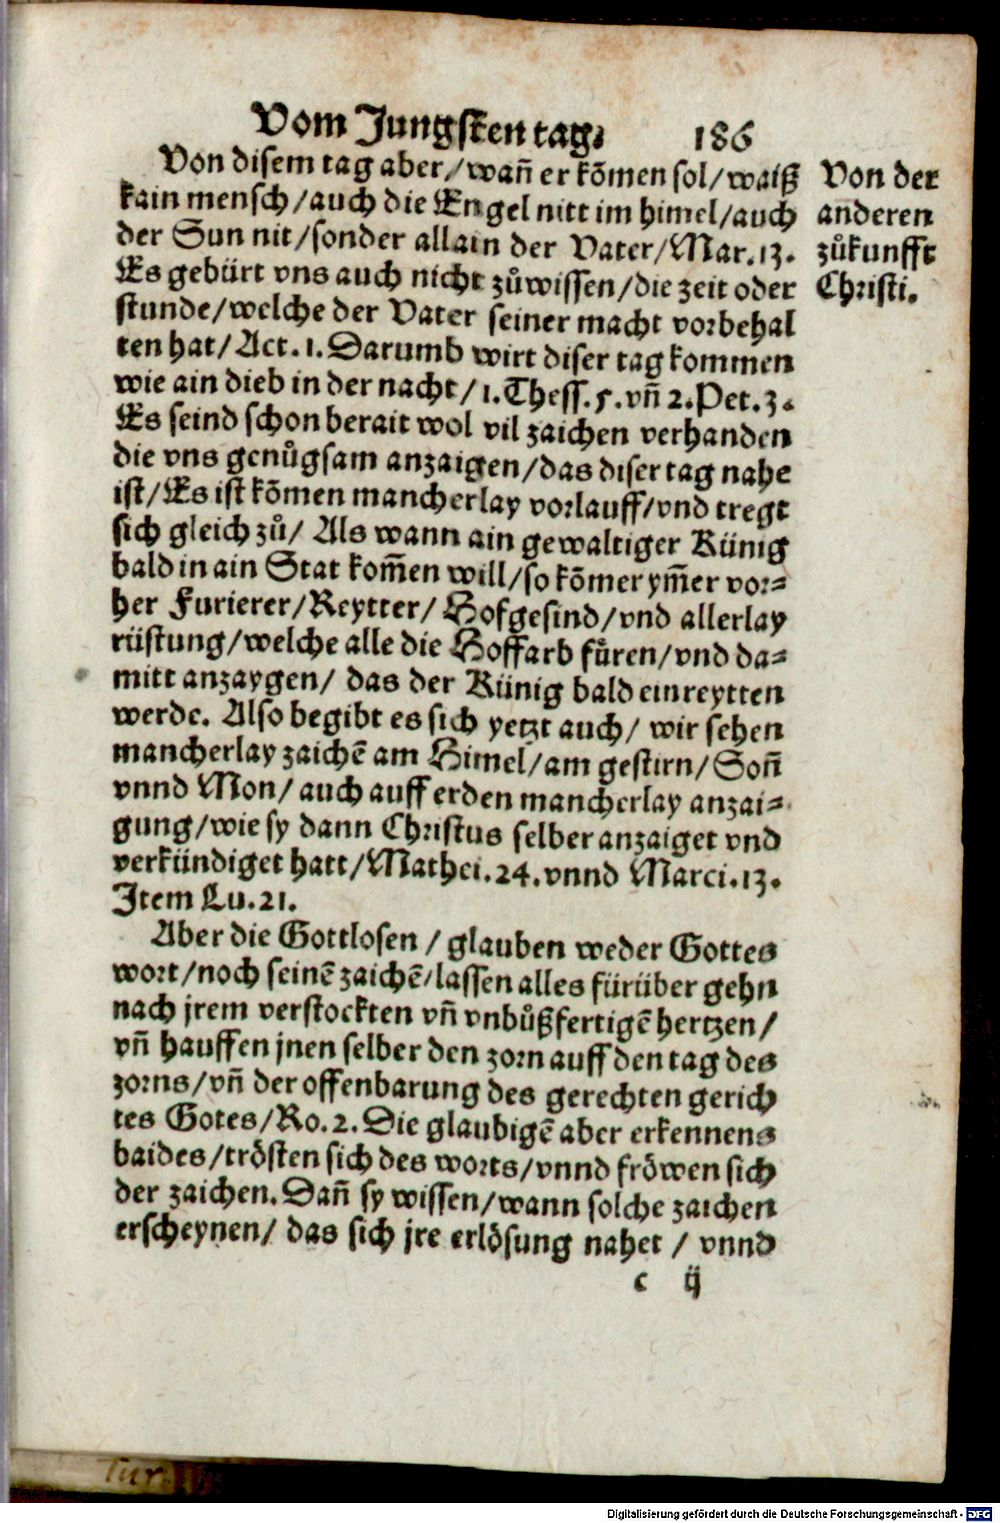 Vom Jungsten tag. 186
Von disem tag aber / wañ er kõmen sol / waiß
kain mensch / auch die Engel nitt im himel / auch
der Sun nit / sonder allain der Vater / Mar. 13.
Es gebürt vns auch nicht zůwissen / die zeit oder
stunde / welche der Vater seiner macht vorbehal
ten hat / Act. 1. Darumb wirt diser tag kommen
wie ain dieb in der nacht / 1. Thess. 5. vñ 2. Pet. 3.
Es seind schon berait wol vil zaichen verhanden
die vns genůgsam anzaigen / das diser tag nahe
ist / Es ist kõmen mancherlay vorlauff / vnd tregt
sich gleich zů / Als wann ain gewaltiger Künig
bald in ain Stat kom̃en will / so kõmer ym̃er vor-
her Furierer / Reytter / Hofgesind / vnd allerlay
rüstung / welche alle die Hoffarb fůren / vnd da-
mitt anzaygen / das der Künig bald einreytten
werde. Also begibt es sich yetzt auch / wir sehen
mancherlay zaichẽ am Himel / am gestirn / Soñ
vnnd Mon / auch auff erden mancherlay anzai-
gung / wie sy dann Christus selber anzaiget vnd
verkündiget hatt / Mathei. 24. vnnd Marci. 13.
Item Lu. 21.
Aber die Gottlosen / glauben weder Gottes
wort / noch seinẽ zaichẽ / lassen alles fürüber gehn
nach jrem verstockten vñ vnbůßfertigẽ hertzen /
vñ hauffen jnen selber den zorn auff den tag des
zorns / vñ der offenbarung des gerechten gerich
tes Gotes / Ro. 2. Die glaubigẽ aber erkennens
baides / trösten sich des worts / vnnd fröwen sich
der zaichen. Dañ sy wissen / wann solche zaichen
erscheynen / das sich jre erlösung nahet / vnnd
c ij
Von der
anderen
zůkunfft
Christi.
Tur.
Digitalisierung gefördert durch die Deutsche Forschungsgemeinschaft - DFG